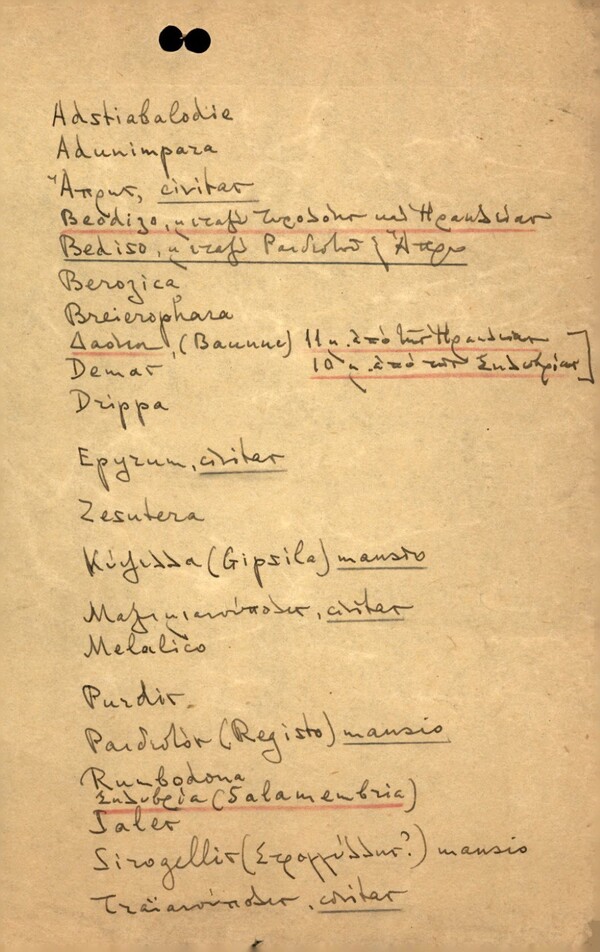 Adstiabalodie
Adunimpara
Ἄπρης, civitas
Beodizo, μεταξὺ Τυρολόης καὶ Ἡρακλείας
Bediso, μεταξὺ Ραιδεστοῦ & Ἄπρω
Berozica
Breierophara
Δαόνιον, (Baunne) 11 μ. ἀπὸ τῆς Ἡρακλείας
Demas 10 μ. ἀπὸ τῆς Σηλυβρίας
Drippa
Epyrum, civitas
Zesutera
Κύψελλα (Gipsila) mansio
Μαξιμιανούπολις, civitas
Melalico
Purdis
Ραιδεστὸς (Registo) mansio
Rumbodona
Σηλυβρία (Salamembria)
Sales
Sirogellis (Στρογγύλλης?) mansio
Τραϊανούπολις, civitas